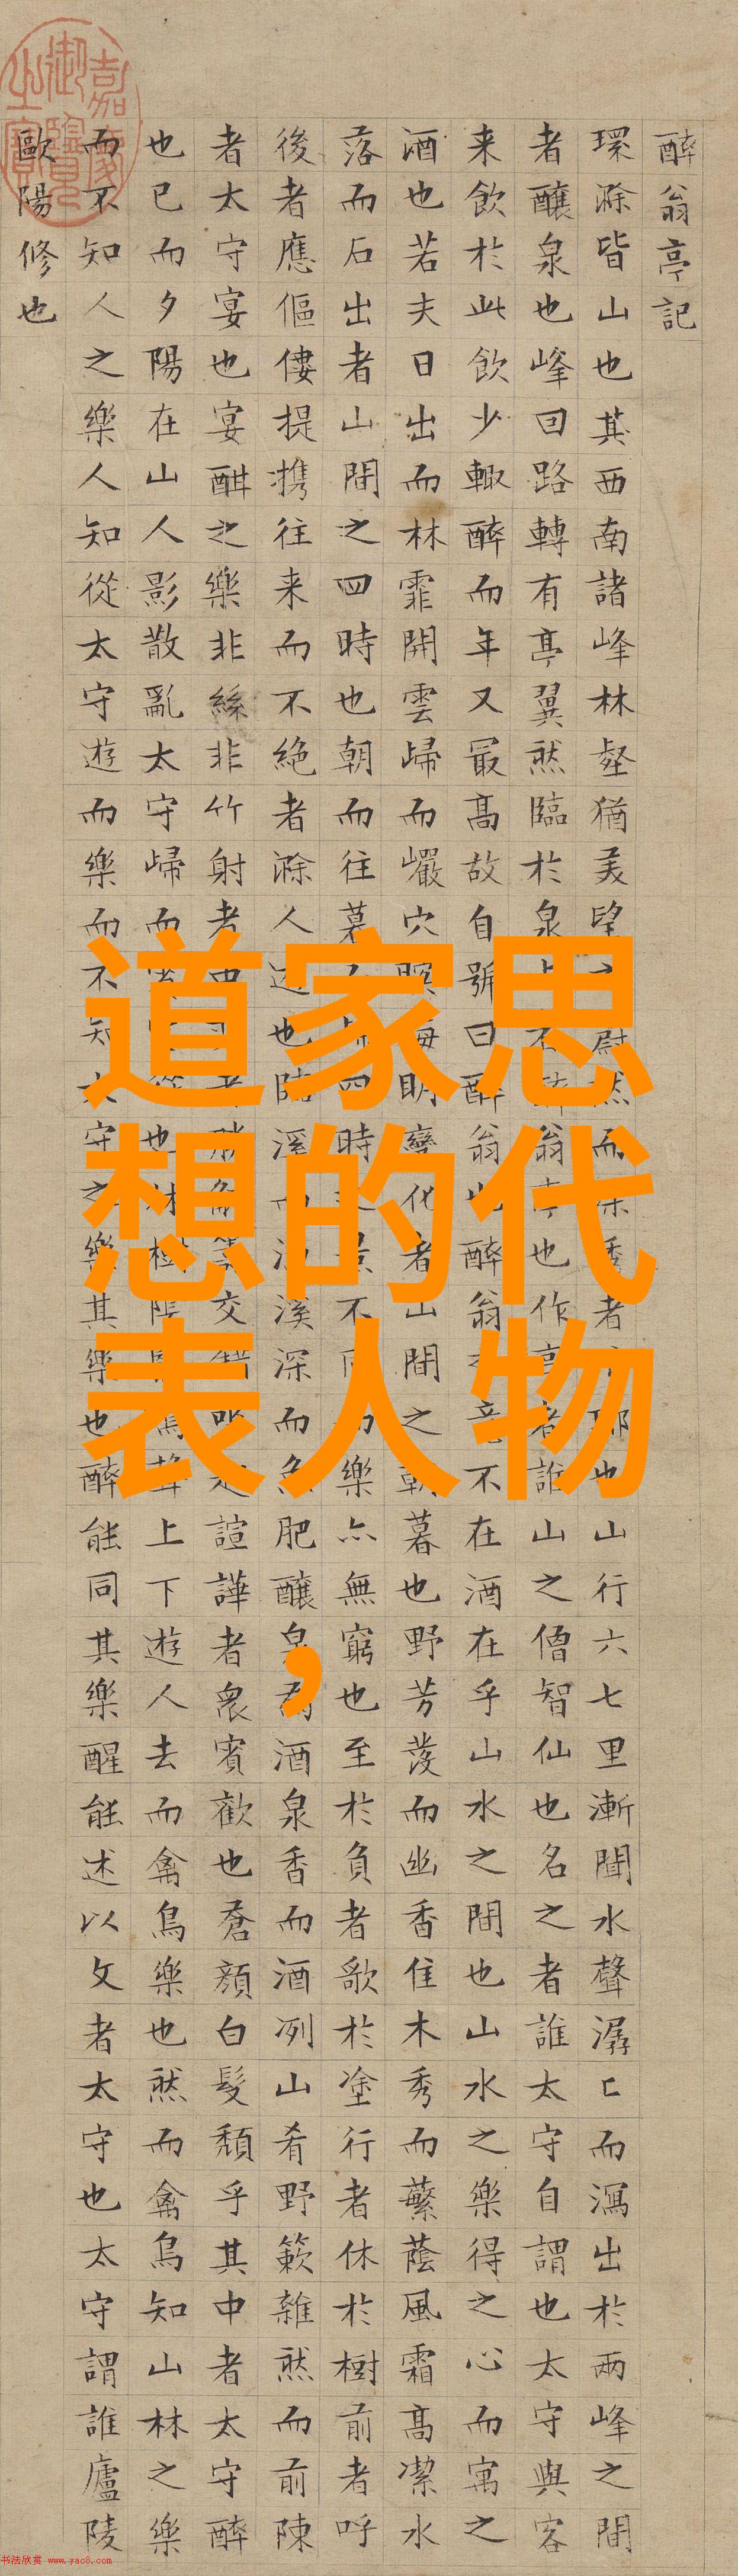 醉翁亭記
環滁皆山也其西南諸峰林壑猶美望尉然而深秀者琊也山行六七里漸聞水聲潺〻而瀉出於兩峰之間
者釀泉也峰回路轉有亭翼然臨於泉上醉翁亭也作亭者誰山之僧智仙也名之者誰太守自謂也太守與客
来飲於此飲少輒醉而年又最高故自號曰醉翁也醉翁之意不在酒在乎山水之間也山水之樂得之心而寓之
酒也若夫日出而林霏開雲歸而巖穴暝晦明變化者山間之朝暮也野芳發而幽香佳木秀而蘩蔭風霜高潔水
落而石出者山間之四時也朝而往暮而歸四時之景不同而樂亦無窮也至於負者歌於塗行者休於樹前者呼
後者應傴僂提携往来而不絶者滁人遊也臨溪而漁溪深而魚肥釀泉為酒泉香而酒冽山肴野簌雜然而前陳
者太守宴也宴酣之樂非絲非竹射者中者勝觥籌交錯起諠譁者衆賓歡也蒼顏白髮頹乎其中者太守醉
也已而夕陽在山人影散亂太守歸而賓客從也林樹陰翳鳴聲上下遊人去而禽鳥樂也然而禽鳥知山林之樂
而不知人之樂人知從太守遊而樂而不知太守之樂其樂也醉能同其樂醒能述以文者太守也太守謂誰廬陵
歐陽修也
嘉慶御覽之寶
道家思
想的代
表人物
，
书法欣赏 www.yac8.com